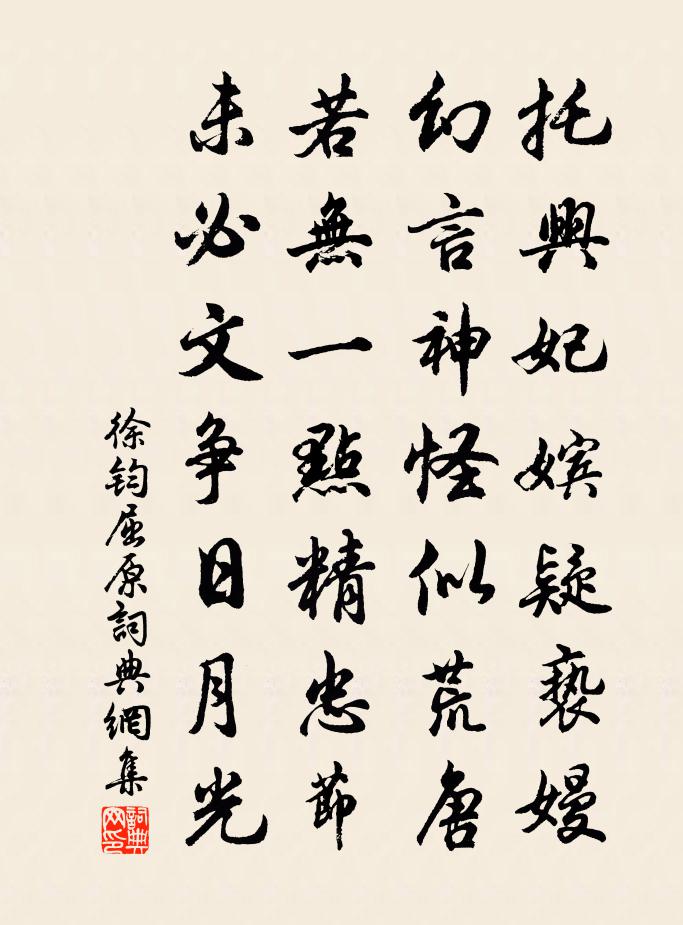 托興妃嬪疑褻嫚
幻言神怪似荒唐
若無一點精忠節
未必文争日月光
徐钧屈原詞典網集
詞典网印